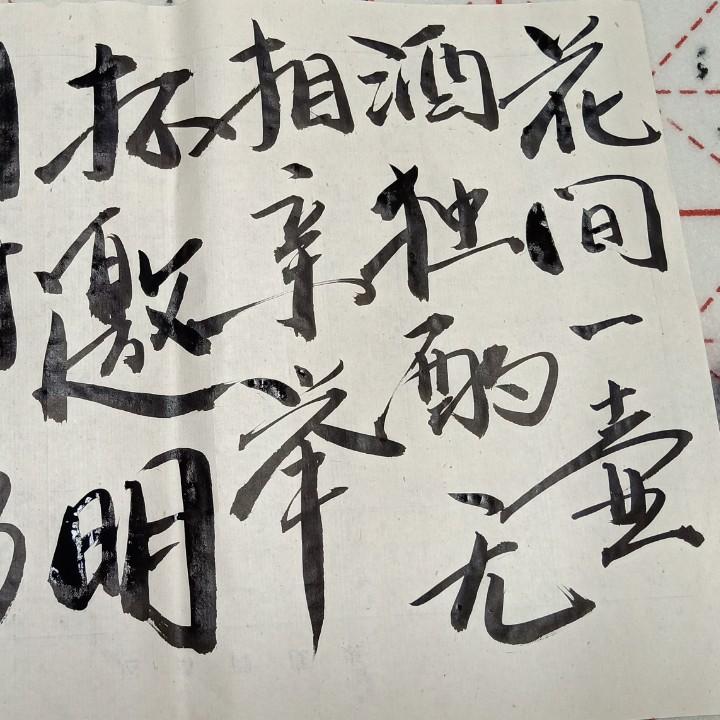 花间一壶
酒独酌无
相亲举
杯邀明